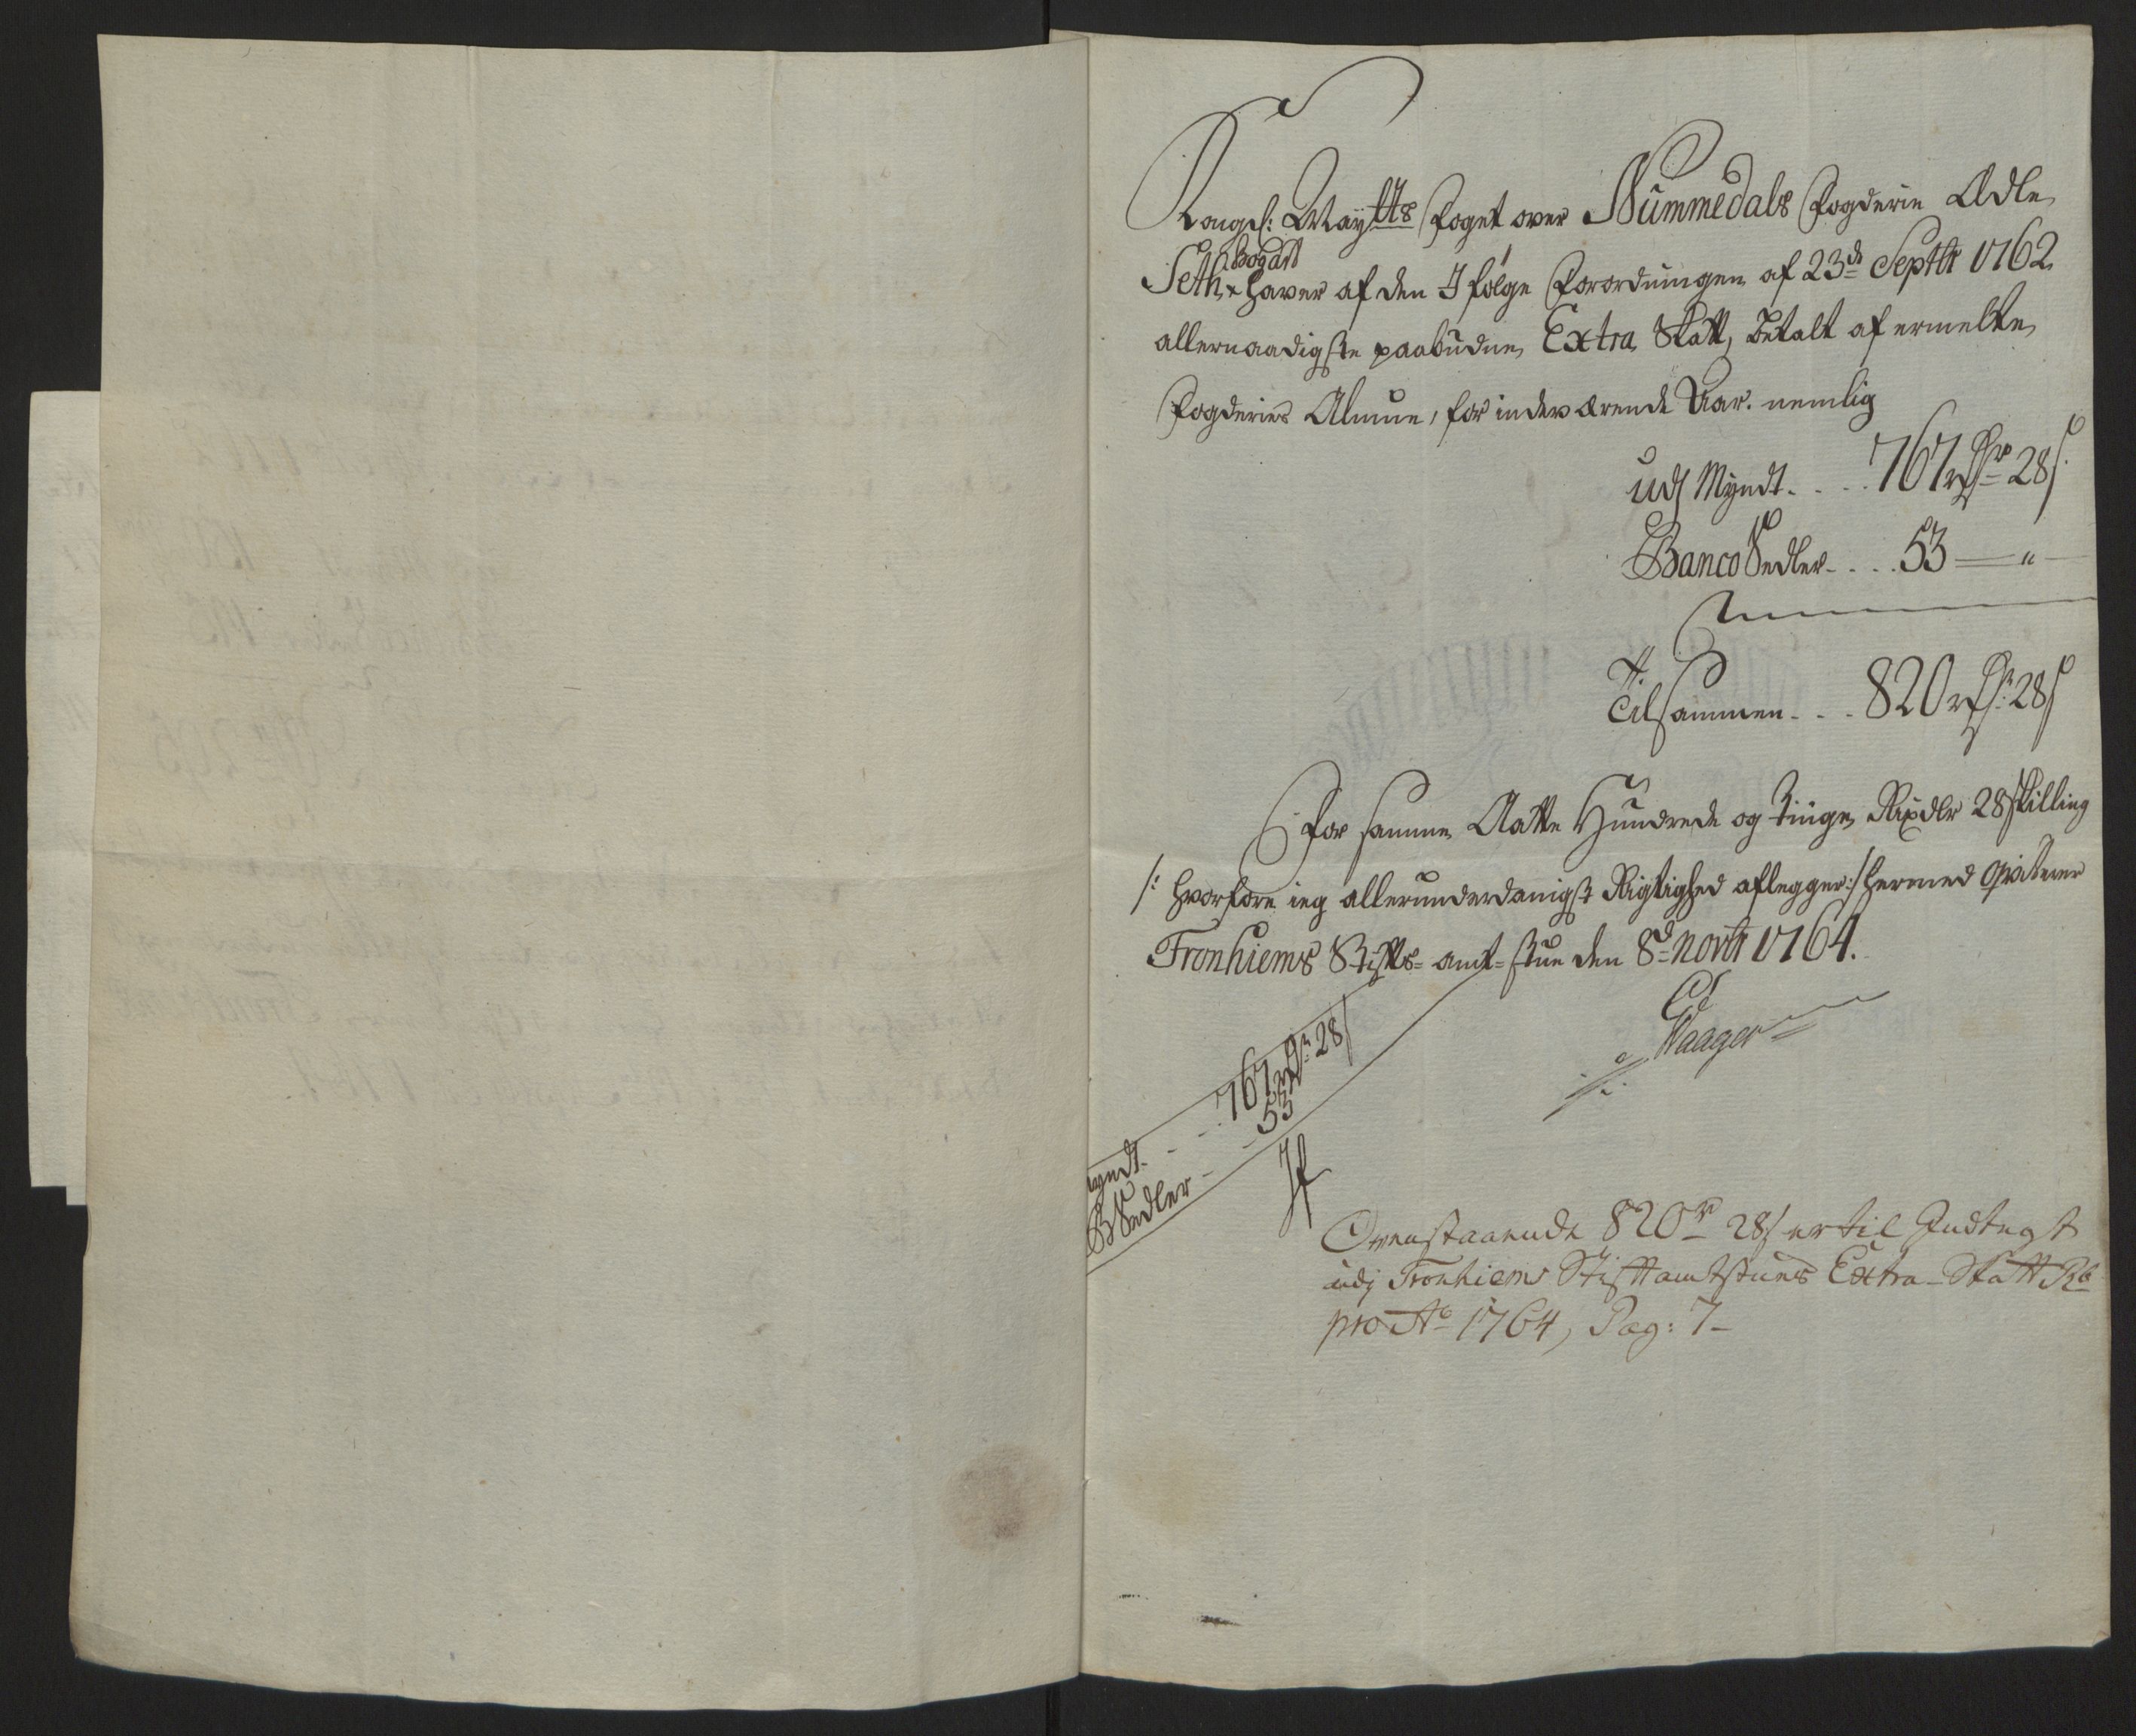 Kongel: Maytts Foget over Nummedals Fogderie Adle
Bogart
Seth + haver af den I følge Forordningen af 23de Septbr 1762
allernaadigste paabudne Extra Skatt, betalt af ermelte
Fogderies Almue, for indeværende Aar. nemlig
udj Myndt. . . . 767 rdr 28 s.
Banco Sedler . . . . 53 — "
Tilsammen . . . 820 rdr: 28 s
For samme Aatte Hundrede og Tiuge Rixdlr 28 skilling
/: hvorfore ieg allerunderdanigst Rigtighed aflegger :/ hermed qvitterer
Tronhiems Stifts-amt-stue den 8de Novbr 1764.
Waager
yndt. - - . 767 rdr: 28 s
B Sedler - - 53
Ovenstaaende 820 r 28 s er til Indtegt
udj Tronhiems Stiftamtstues Extra-Skatt Rb
pro Ao 1764, Pag: 7-